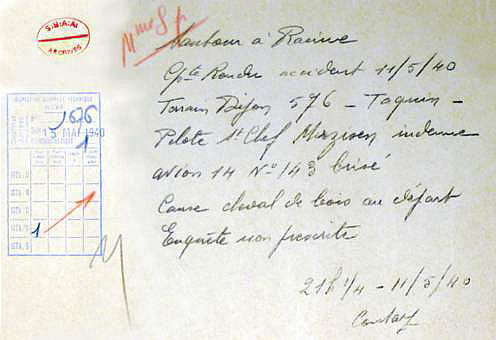 S.H.A.A.
ARCHIVES
à Racine
Cpte Rendu accident 11/5/40
Terrain Dijon 576 - Taquin -
Pilote St Chef indemne
avion 14 N° 143 brisé
Cause cheval de bois au départ
Enquête non prescrite
21h 1/4 - 11/5/40
1676
13 MAI 1940
1
1